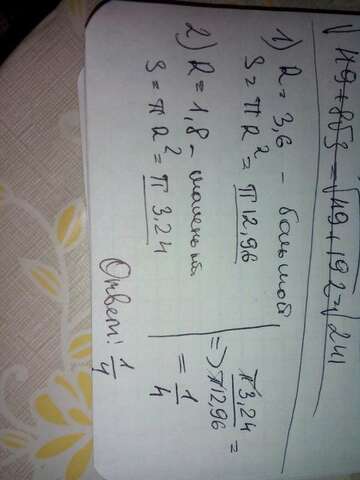 √49+8√3=√49+192=√241
1) R = 3,6 - большой
S = πR² = π12,96
2) R = 1,8 - маленький
S = πR² = π3,24
=> π3,24/π1296 =
= 1/4
Ответ: 1/4